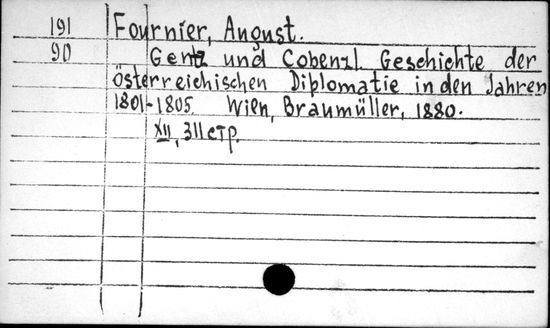 191 Fournier, August.
90 Gentz und Cobenzl Geschichte der
österreichischen Diplomatie in den Jahren
1801-1805. Wien, Braumüller, 1880.
XII, 311 стр.